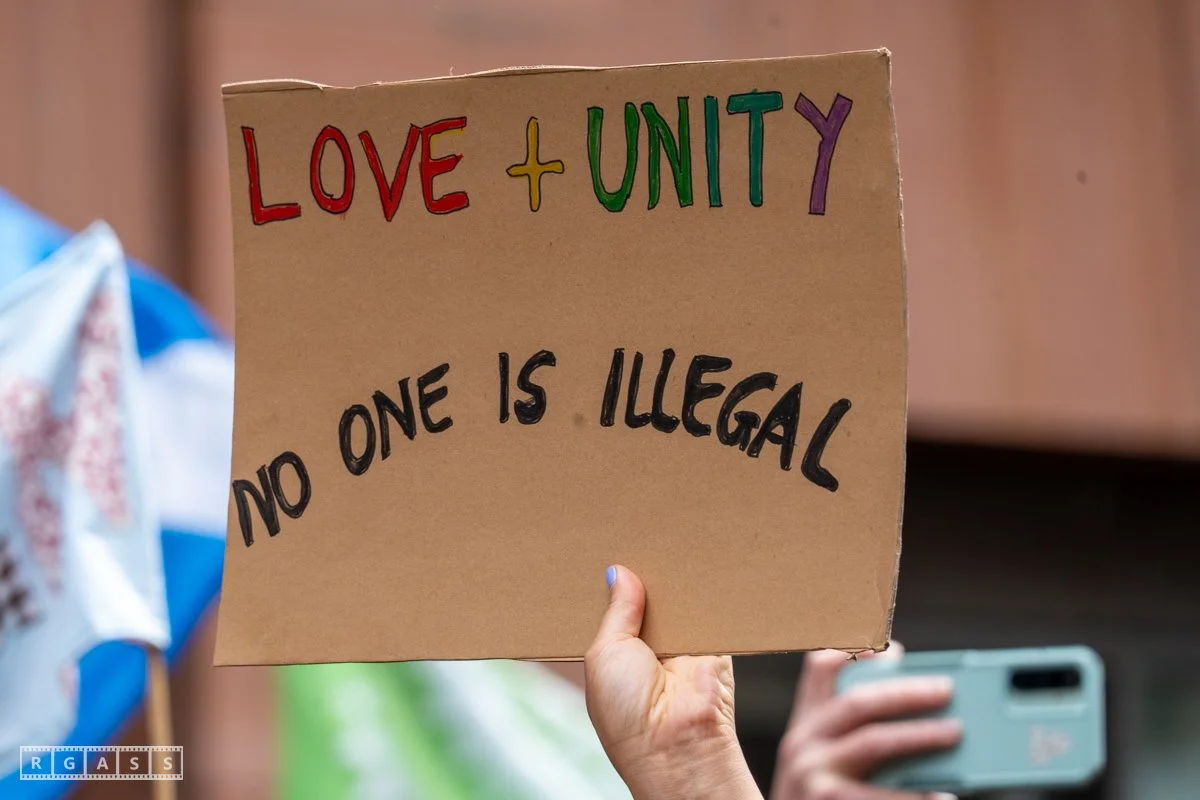 LOVE + UNITY
NO ONE IS ILLEGAL
RGASS